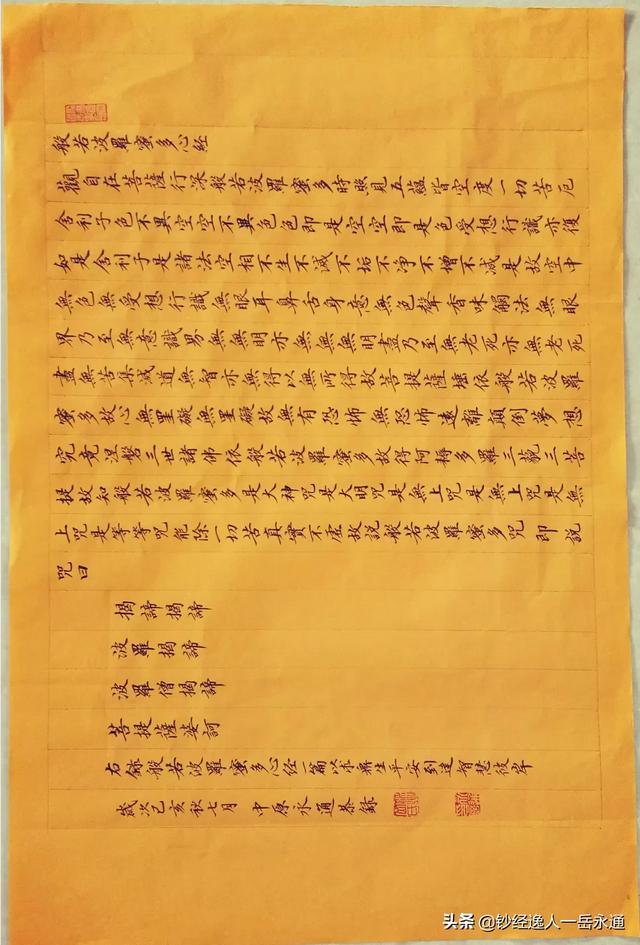 般若波羅蜜多心经
觀自在菩薩行深般若波羅蜜多時照見五藴皆空度一切苦厄
舍利子色不異空空不異色色即是空空即是色受想行識亦復
如是舍利子是諸法空相不生不滅不垢不净不增不减是故空中
無色無受想行識無眼耳鼻舌身意無色聲香味觸法無眼
界乃至無意識界無無明亦無無明盡乃至無老死亦無老死
盡無苦集滅道無智亦無得以無所得故菩提薩埵依般若波羅
蜜多故心無罣礙無罣礙故無有恐怖無恐怖遠離顛倒夢想
究竟涅槃三世諸佛依般若波羅蜜多故得阿耨多羅三藐三菩
提故知般若波羅蜜多是大神咒是大明咒是無上咒是無上咒是無
上咒是等等咒能除一切苦真實不虛故説般若波羅蜜多咒即説
咒曰
揭諦揭諦
波羅揭諦
波羅僧揭諦
菩提薩婆訶
右錄般若波羅蜜多心经一篇以求生平安到達智慧彼岸
歲次己亥秋七月 中原永通恭錄
头条 @钞经逸人一岳永通